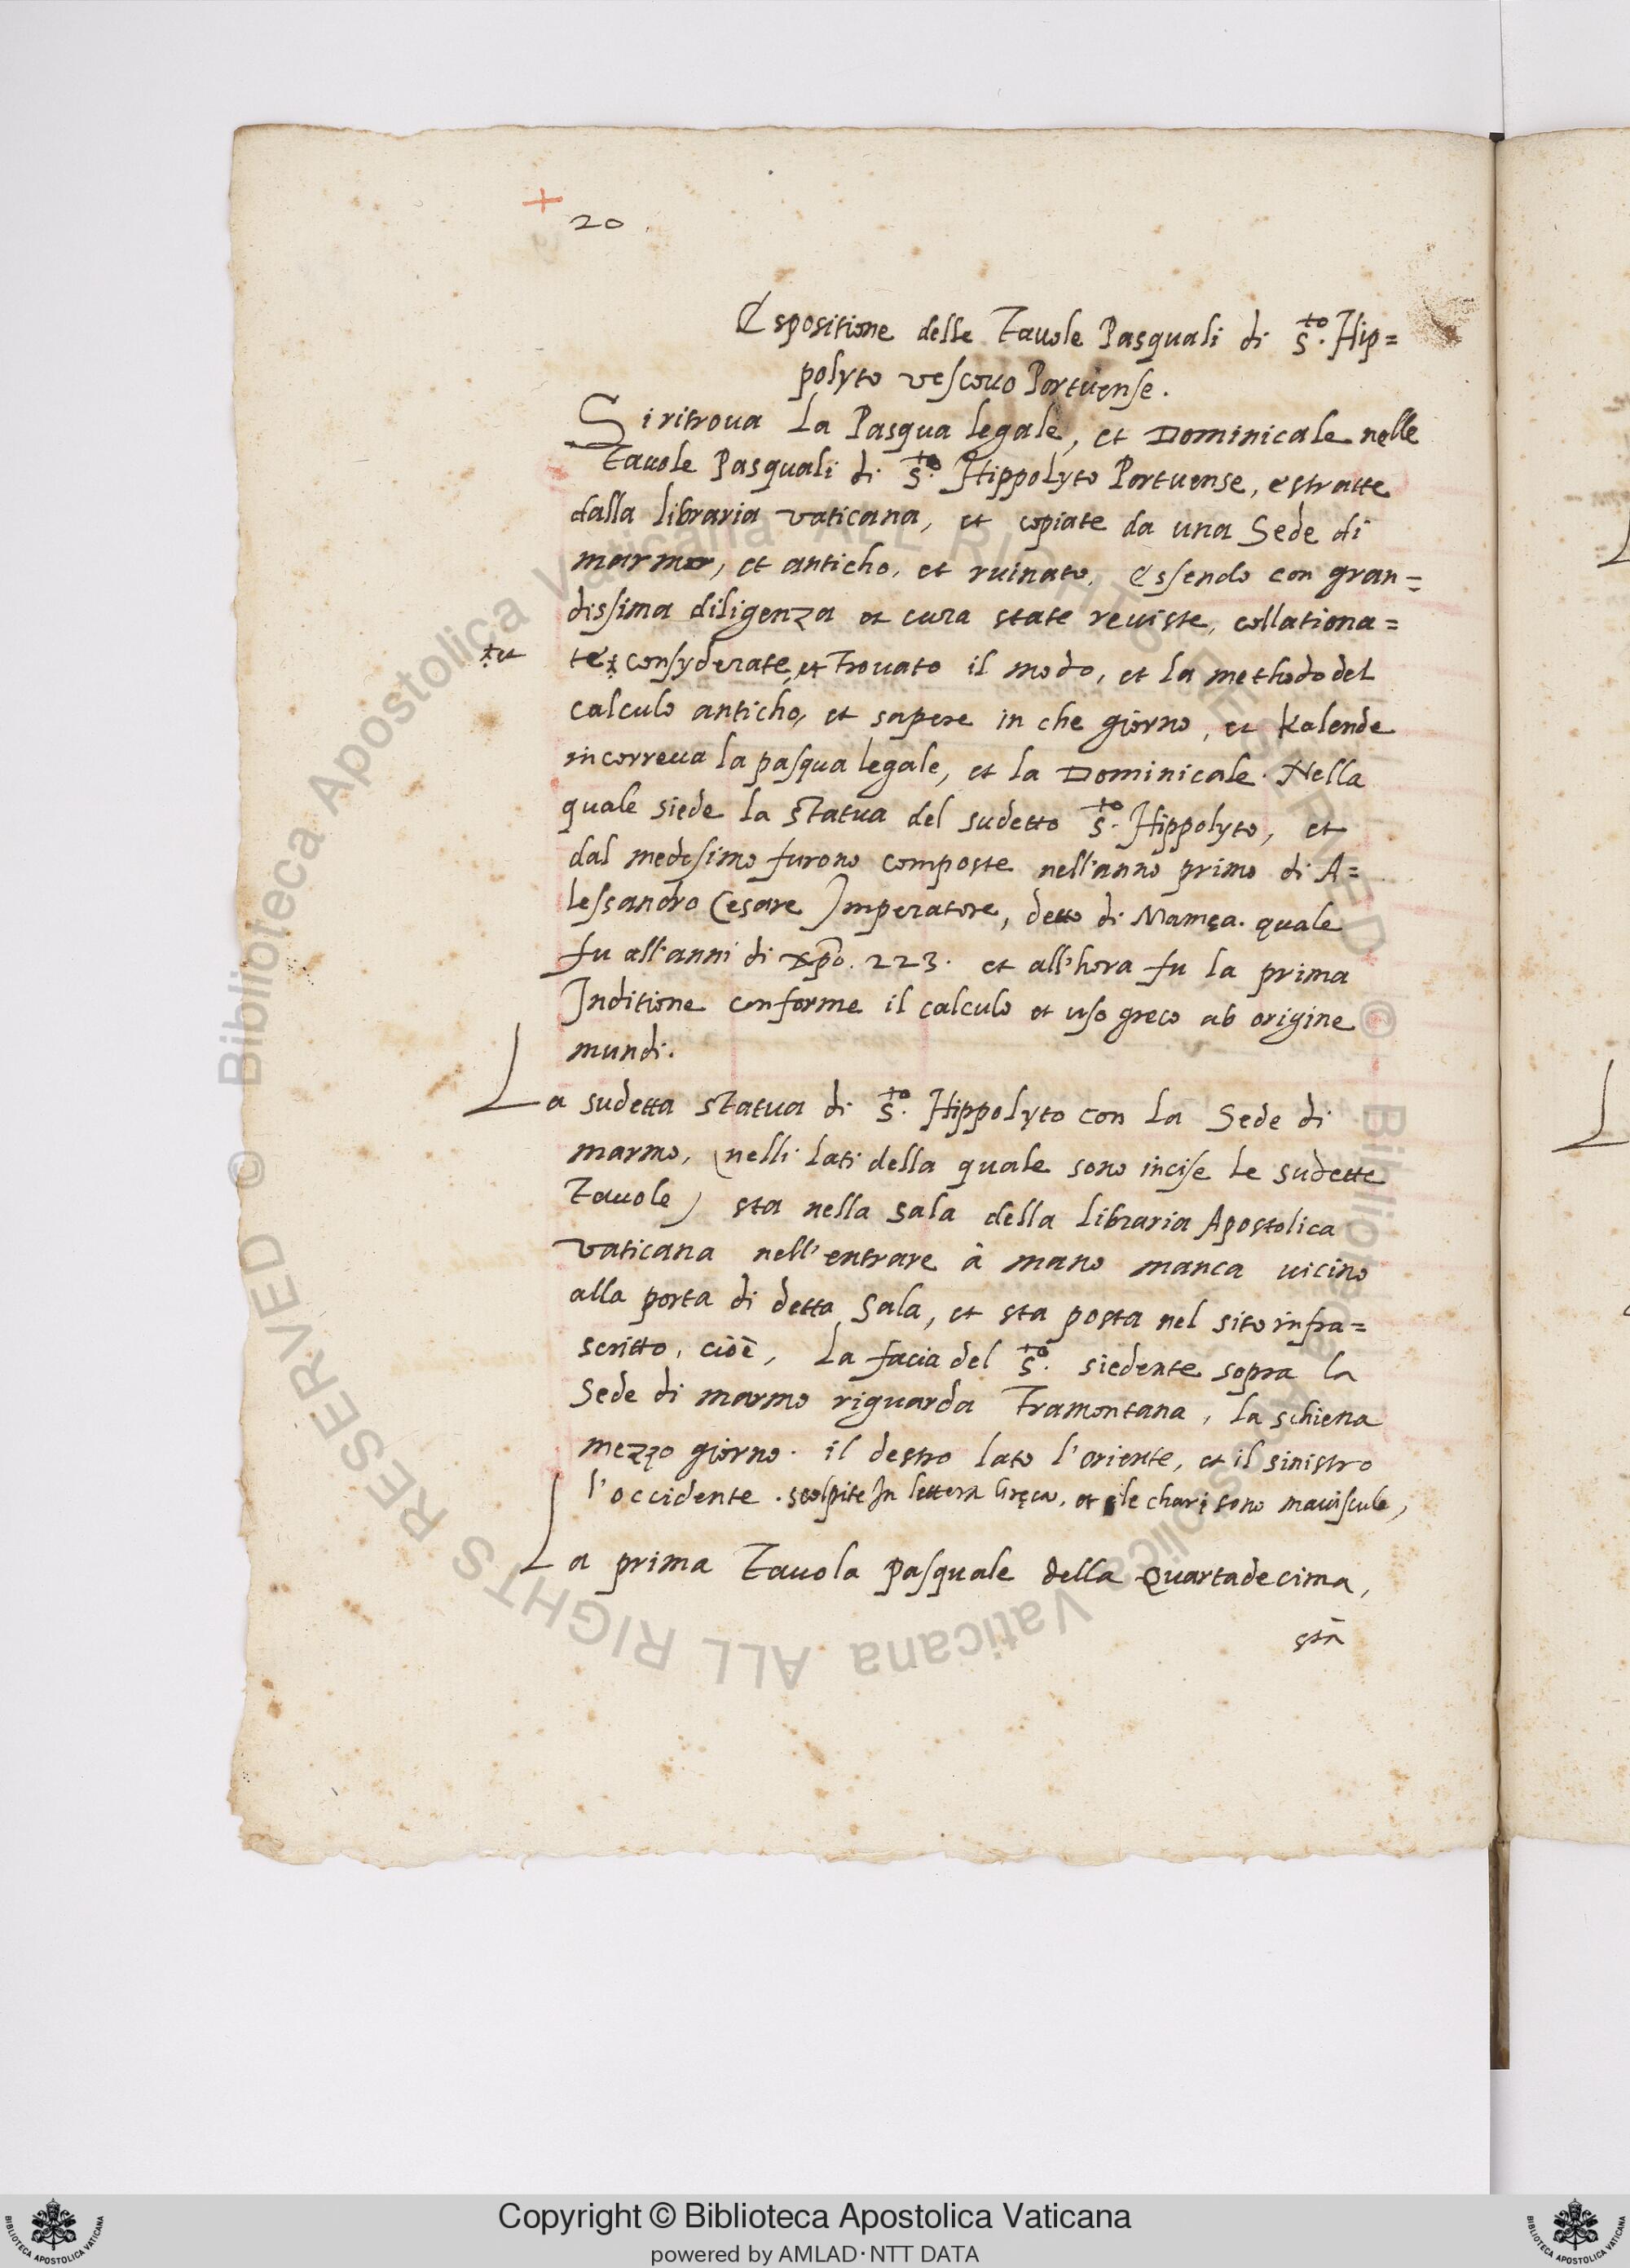 20.
Espositione delle Tavole Pasquali di S.to Hip=
polyto vescovo Portuense.
Si ritroua la Pasqua legale, et Dominicale nelle
Tauole Pasquali di S.to Hippolyto Portuense, estratte
dalla libraria vaticana, et copiate da una Sede di
marmo, et anticho, et ruinato. Essendo con gran=
dissima diligenza et cura state reviste, collationa=
*et te* consyderate, et trouato il modo, et la methodo del
calculo anticho, et sapere in che giorno, et Kalende
incorreua la pasqua legale, et la Dominicale. Nella
quale siede la statua del sudetto S.to Hippolyto, et
dal medesimo furono composte nell'anno primo di A=
lessandro Cesare Imperatore, detto di Mamęa. quale
fu all'anni di xp̄o. 223. et all'hora fu la prima
Inditione conforme il calculo et uso greco ab origine
mundi.
La sudetta statua di S.to Hippolyto con la Sede di
marmo, (nelli lati della quale sono incise le sudette
Tauole) sta nella sala della libraria Apostolica
vaticana nell'entrare à mano manca uicino
alla porta di detta Sala, et sta posta nel sito infra=
scritto, cioè, La facia del S.to siedente sopra la
Sede di marmo riguarda Tramontana, la schiena
mezzo giorno. il destro lato l'oriente, et il sinistro
l'occidente. scolpite In lettera Gręca, et le sono maiuscule,
La prima Tauola Pasquale della Quartadecima,
stà
© Biblioteca Apostolica Vaticana ALL RIGHTS RESERVED © Biblioteca Apostolica Vaticana ALL RIGHTS RESERVED
Copyright © Biblioteca Apostolica Vaticana
powered by AMLAD·NTT DATA
BIBLIOTECA APOSTOLICA VATICANA
BIBLIOTECA APOSTOLICA VATICANA